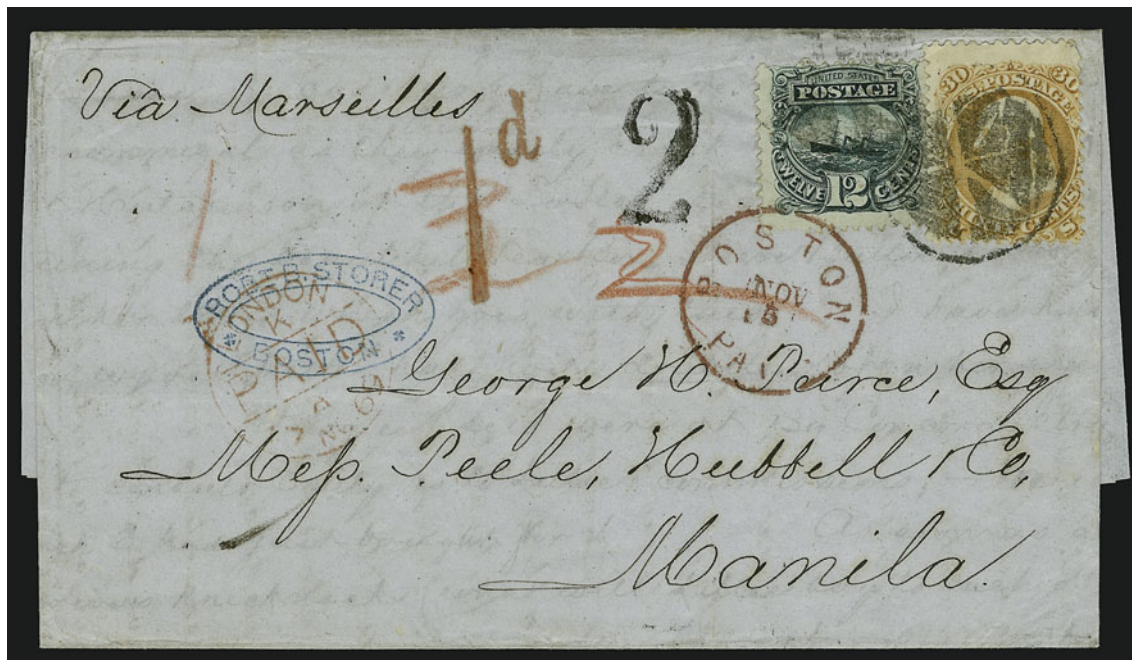 Viâ Marseilles
1d
2
2
UNITED STATES
POSTAGE
TWELVE 12 CENTS
30 U.S. POSTAGE 30
BOSTON
NOV
PAID
ROBT B. STORER
BOSTON
LONDON
PAID
George H. Peirce, Esq
Mess. Peele, Hubbell & Co,
Manila.